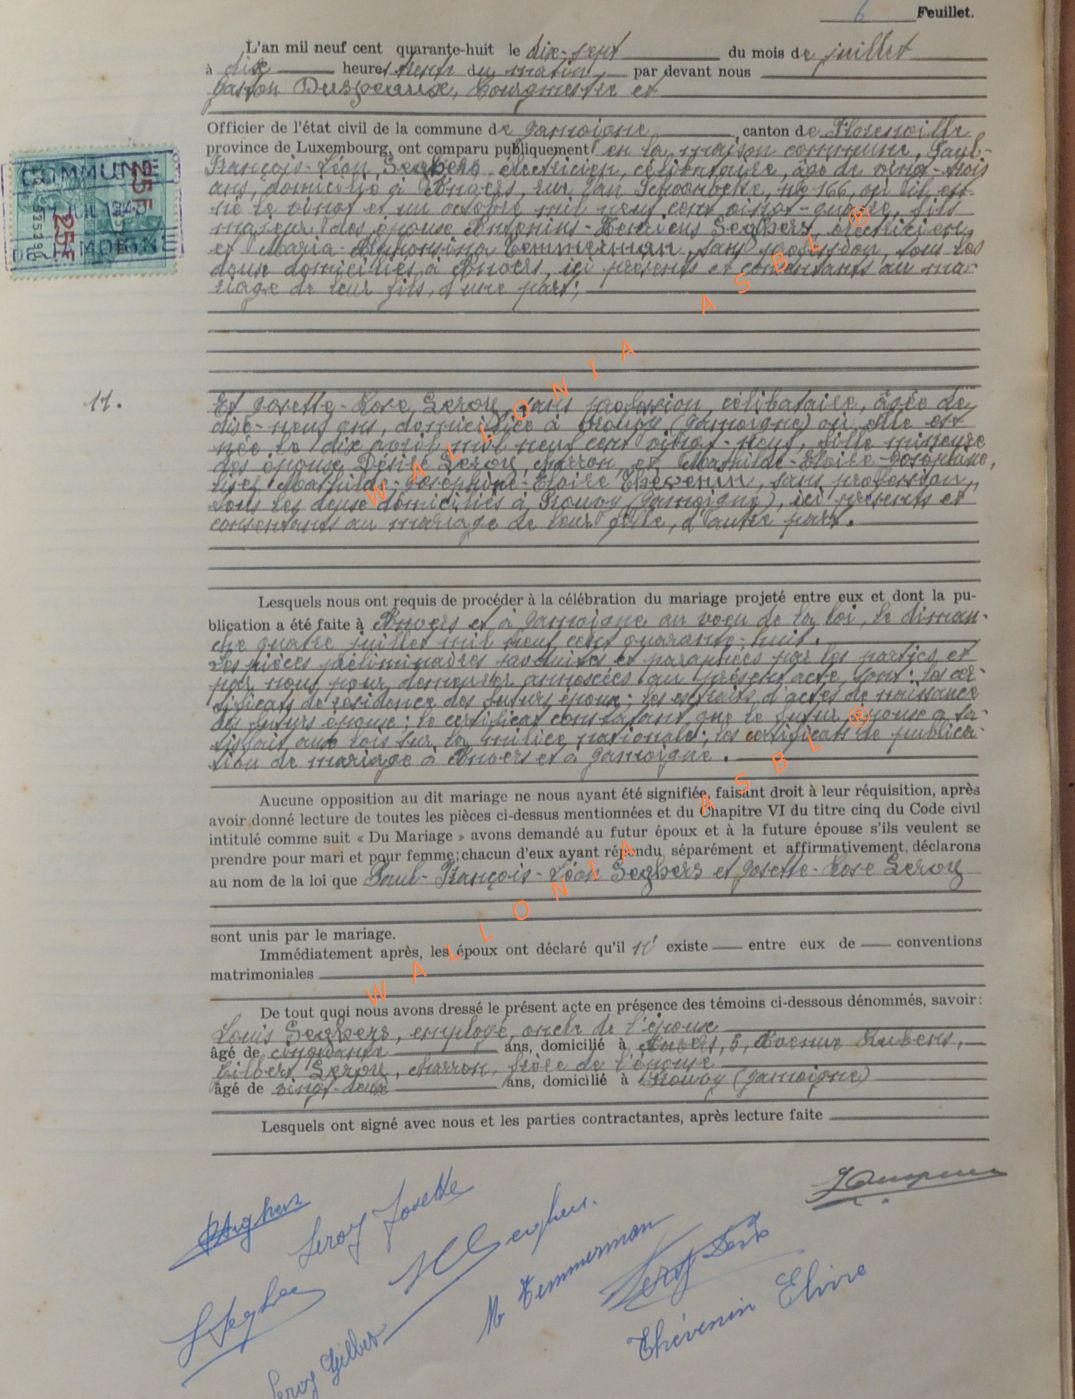 6 Feuillet.
L'an mil neuf cent quarante-huit le dix-sept du mois de juillet
à dix heures du matin, par devant nous
Gaston Duspeaux, Bourgmestre et
Officier de l'état civil de la commune de Jamoigne, canton de Florenville
province de Luxembourg, ont comparu publiquement en la maison commune, Paul-
François-Léon Seghers, électricien, célibataire, âgé de vingt-trois
ans, domicilié à Anvers, rue Van Schoonbeke, no 166, où il est
né le vingt et un octobre mil neuf cent vingt-quatre, fils
majeur des époux Seghers, électricien,
et Maria- Temmerman, sans profession, tous les
deux domiciliés à Anvers, ici présents et consentants au ma-
riage de leur fils, d'une part;
11.
Et Josette-Rose Leroy, sans profession, célibataire, âgée de
dix-neuf ans, domiciliée à Prouvy (Jamoigne) où elle est
née le dix avril mil neuf cent vingt-neuf, fille mineure
des époux Désiré Leroy, charron, et Mathilde-Elvire-Joséphine,
Mathilde-Joséphine-Elvire Thévenin, sans profession,
tous les deux domiciliés à Prouvy (Jamoigne), ici présents et
consentants au mariage de leur fille, d'autre part.
Lesquels nous ont requis de procéder à la célébration du mariage projeté entre eux et dont la pu-
blication a été faite à Anvers et à Jamoigne au vœu de la loi, le diman-
che quatre juillet mil neuf cent quarante-huit.
Les pièces préliminaires produites et paraphées par les parties et
par nous pour demeurer annexées au présent acte, sont: les cer-
tificats de résidence des futurs époux; les extraits d'actes de naissance
des futurs époux; le certificat constatant que le futur époux a sa-
tisfait aux lois sur la milice nationale; les certificats de publica-
tion de mariage à Anvers et à Jamoigne.
Aucune opposition au dit mariage ne nous ayant été signifiée, faisant droit à leur réquisition, après
avoir donné lecture de toutes les pièces ci-dessus mentionnées et du Chapitre VI du titre cinq du Code civil
intitulé comme suit « Du Mariage » avons demandé au futur époux et à la future épouse s'ils veulent se
prendre pour mari et pour femme; chacun d'eux ayant répondu séparément et affirmativement, déclarons
au nom de la loi que Paul-François-Léon Seghers et Josette-Rose Leroy
sont unis par le mariage.
Immédiatement après, les époux ont déclaré qu'il n'existe entre eux de conventions
matrimoniales
De tout quoi nous avons dressé le présent acte en présence des témoins ci-dessous dénommés, savoir:
Louis Seghers, employé, oncle de l'époux
âgé de cinquante ans, domicilié à Anvers, 5, Avenue Rubens,
Gilbert Leroy, charron, frère de l'épouse
âgé de vingt-deux ans, domicilié à Prouvy (Jamoigne)
Lesquels ont signé avec nous et les parties contractantes, après lecture faite
PSeghers
Leroy Josette
Seghers
LSeghers
M Temmerman
Leroy Gilbert
Thévenin Elvire
COMMUNE
25F
WALLONIA ASBL ®
WALLONIA ASBL ®